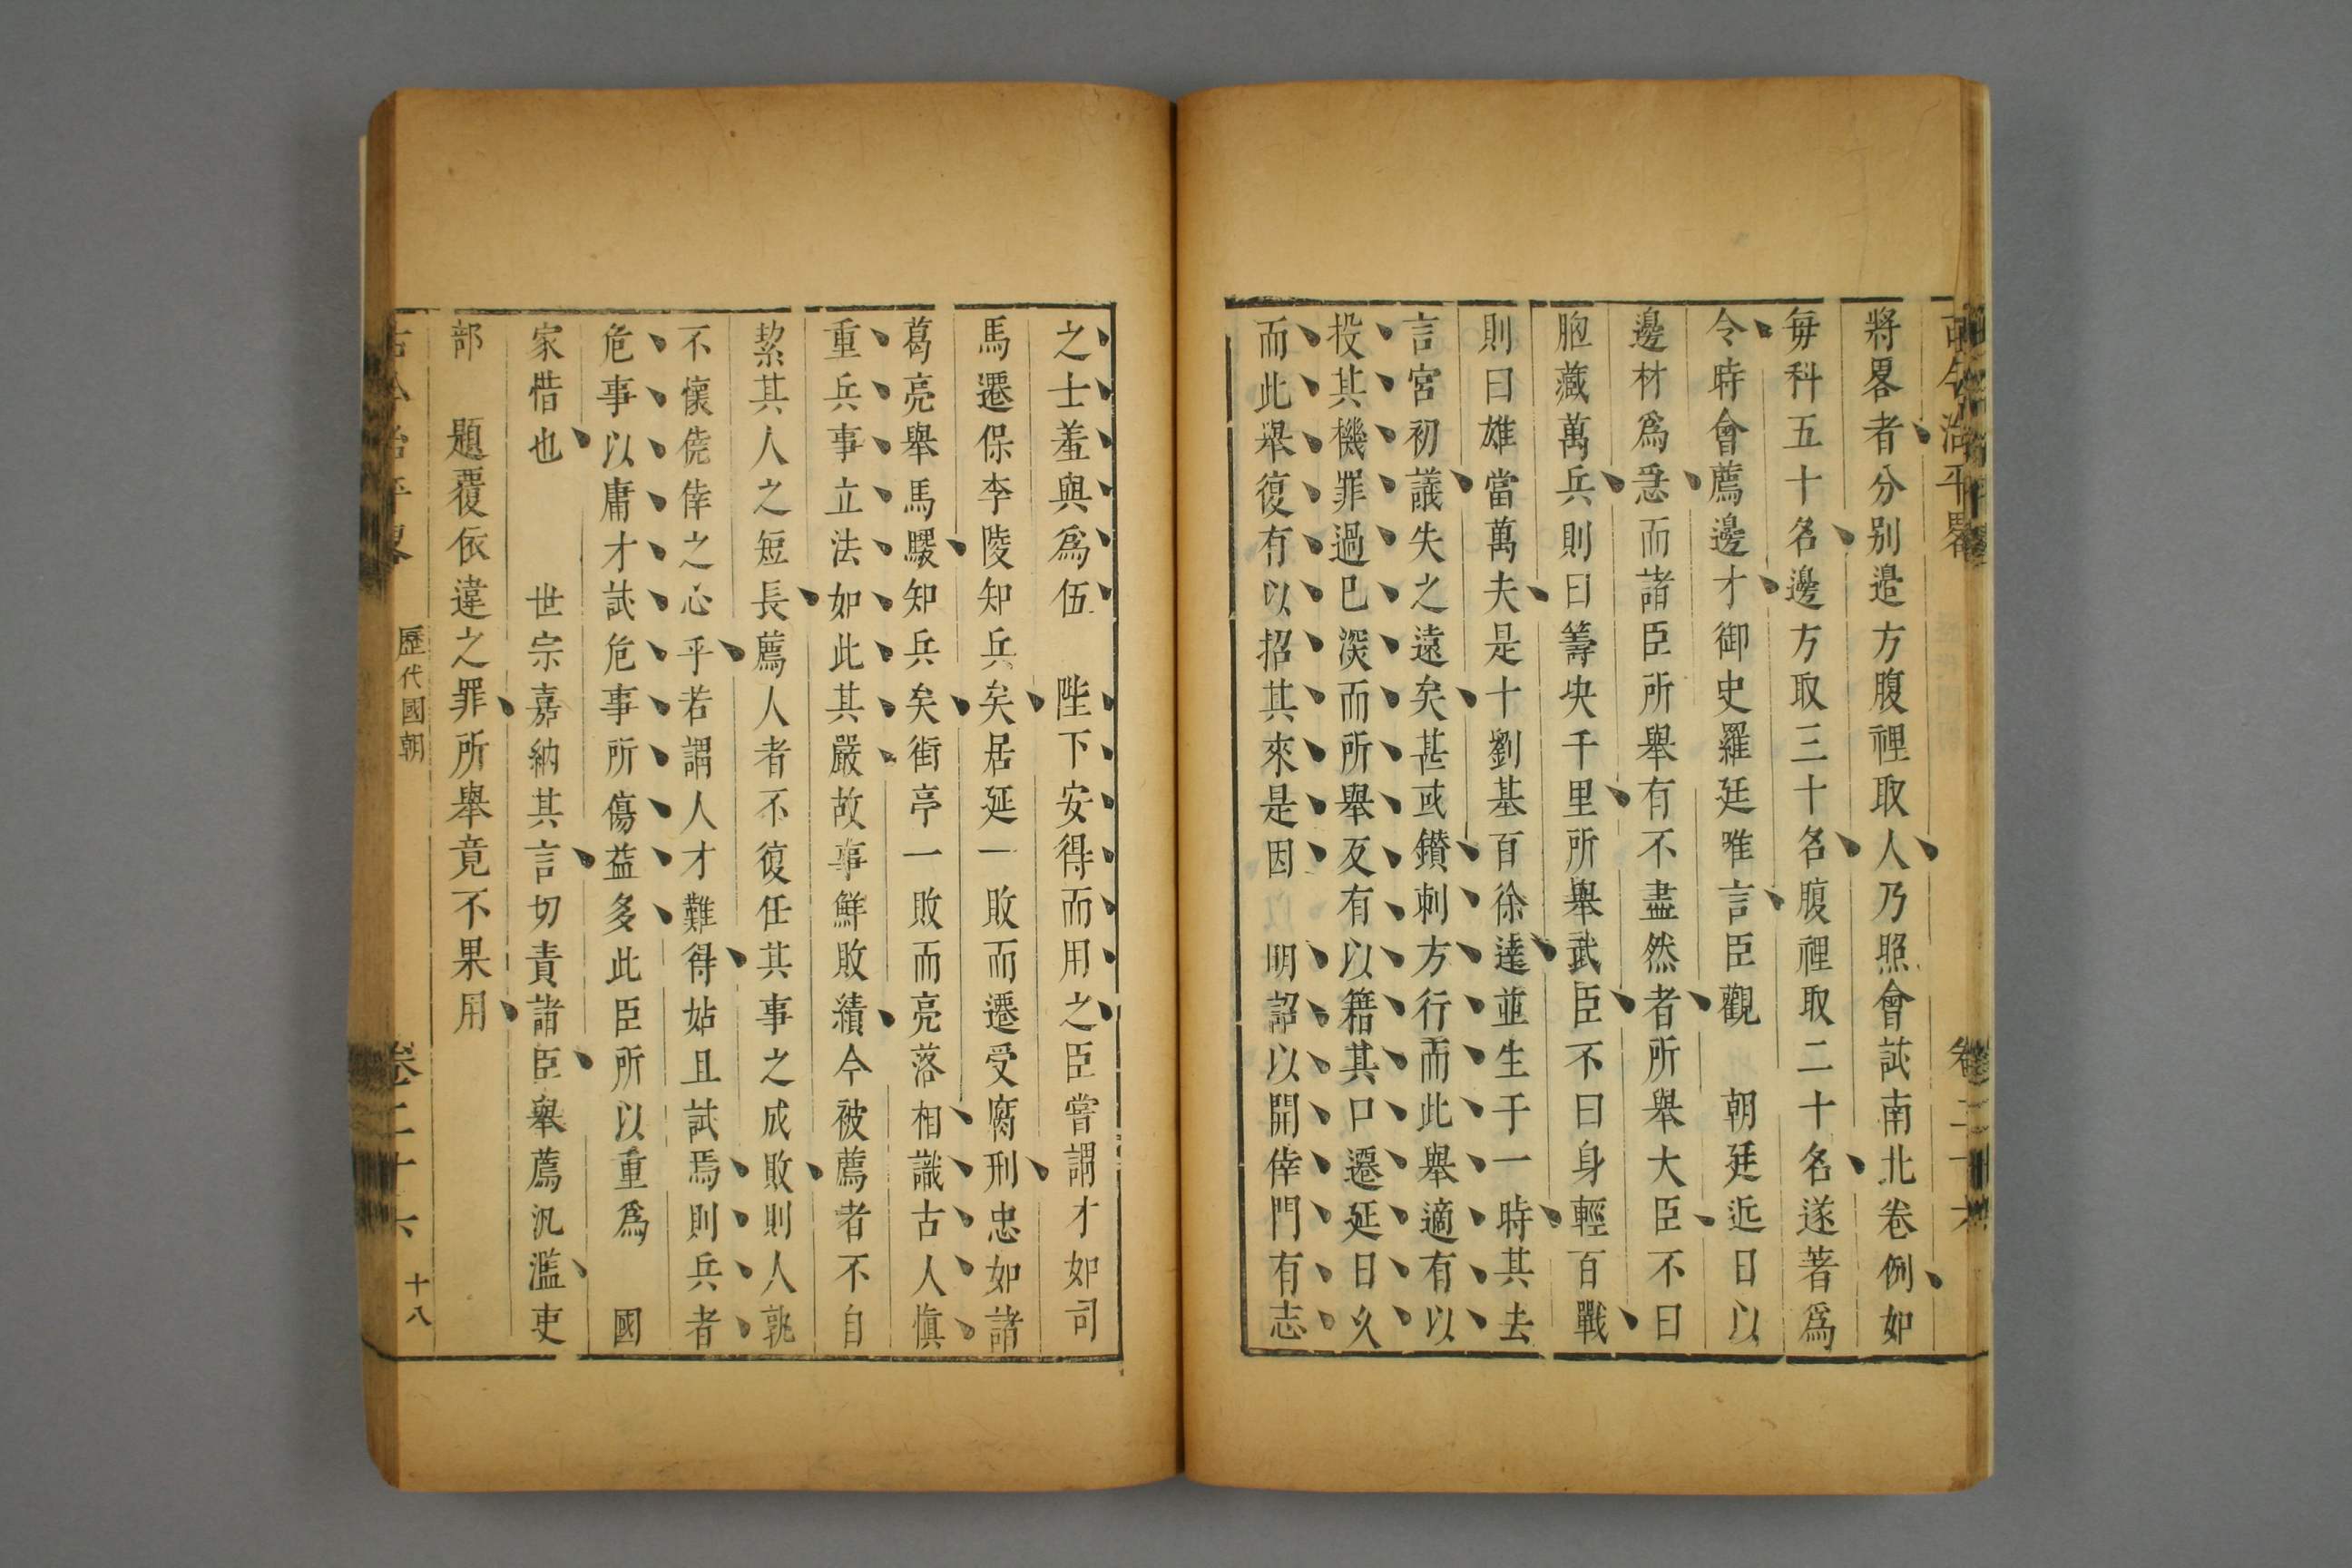 古今治平畧 卷二十六
將畧者分别邉方腹裡取人乃照會試南北卷例如
每科五十名邊方取三十名腹裡取二十名遂著爲
令時會薦邊才御史羅廷唯言臣觀 朝廷近日以
邊材爲急而諸臣所舉有不盡然者所舉大臣不曰
胞藏萬兵則曰籌央千里所舉武臣不曰身輕百戰
則曰雄當萬夫是十劉基百徐達並生于一時其去
言宮初議失之遠矣甚或鑚刺方行而此舉適有以
投其機罪過已深而所舉反有以籍其口遷延日久
而此舉復有以招其來是因 明詔以開倖門有志
之士羞與爲伍 陛下安得而用之臣嘗謂才如司
馬遷保李陵知兵矣居延一敗而遷受腐刑忠如諸
葛亮舉馬騣知兵矣街亭一敗而亮落相識古人愼
重兵事立法如此其嚴故事鮮敗績今被薦者不自
絜其人之短長薦人者不復任其事之成敗則人孰
不懷僥倖之心乎若謂人才難得姑且試焉則兵者
危事以庸才試危事所傷益多此臣所以重爲 國
家惜也 世宗嘉納其言切責諸臣舉薦汎濫吏
部 題覆依違之罪所舉竟不果用
古今治平畧 歷代國朝 卷二十六 十八